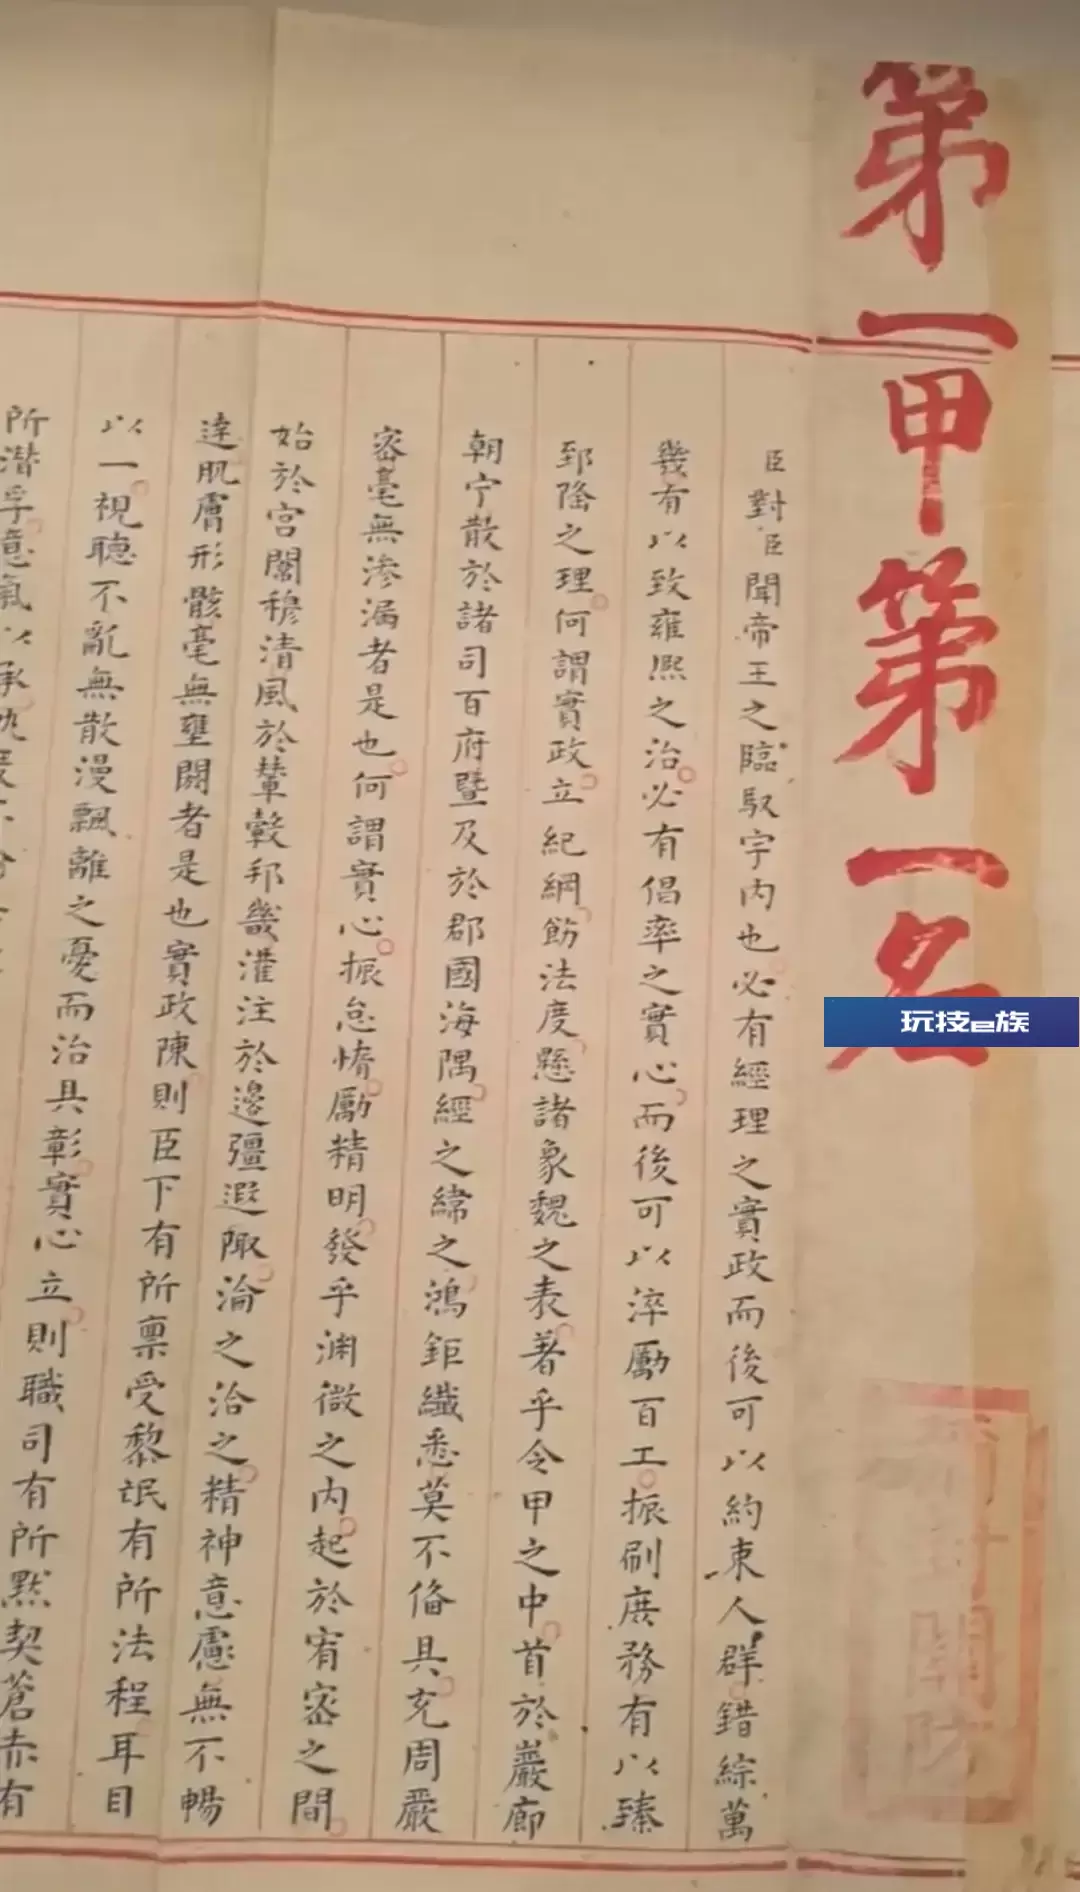 第一甲第一名
玩技e族
臣對臣聞帝王之臨馭宇内也必有經理之實政而後可以約束人群錯綜萬
幾有以致雍熙之治必有倡率之實心而後可以淬勵百工振刷庶務有以臻
郅隆之理何謂實政立紀綱飭法度懸諸象魏之表著乎令甲之中首於巖廊
朝宁散於諸司百府暨及於郡國海隅經之緯之鴻鉅纖悉莫不俻具充周嚴
密毫無滲漏者是也何謂實心振怠惰勵精明發乎渊微之内起於宥密之間
始於宫闈穆清風於輦轂邦畿灌注於邊疆遐陬淪之洽之精神意慮無不暢
達肌膚形骸毫無壅閼者是也實政陳則臣下有所禀受黎氓有所法程耳目
以一視聽不亂無散漫飄離之憂而治具彰實心立則職司有所默契蒼赤有
所潜孚意氣以承
關防